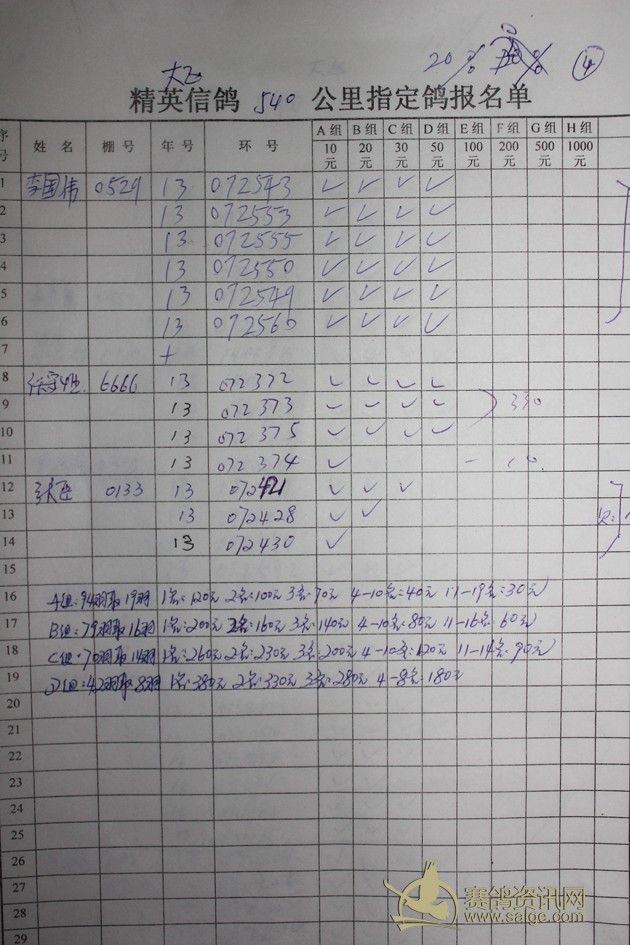 20%
④
大飞
精英信鸽 540 公里指定鸽报名单
序号 姓名 棚号 年号 环号 A组 10元 B组 20元 C组 30元 D组 50元 E组 100元 F组 200元 G组 500元 H组 1000元
1 李国伟 0529 13 072543 ✓ ✓ ✓ ✓
2 13 072553 ✓ ✓ ✓ ✓
3 13 072555 ✓ ✓ ✓ ✓
4 13 072550 ✓ ✓ ✓ ✓
5 13 072549 ✓ ✓ ✓ ✓
6 13 072560 ✓ ✓ ✓ ✓
7
8 6666 13 072372 ✓ ✓ ✓ ✓
9 13 072373 ✓ ✓ ✓ ✓ 330
10 13 072375 ✓ ✓ ✓ ✓
11 13 072374 ✓
12 0133 13 072421 ✓ ✓ ✓
13 13 072428 ✓ ✓
14 13 072430 ✓
15
16 A组:94羽取19羽 1名:120元 2名:100元 3名:70元 4-10名:40元 11-19名:30元
17 B组:79羽取16羽 1名:200元 2名:160元 3名:140元 4-10名:80元 11-16名:60元
18 C组:70羽取14羽 1名:260元 2名:230元 3名:200元 4-10名:120元 11-14名:90元
19 D组:42羽取8羽 1名:380元 2名:330元 3名:280元 4-8名:180元
20
21
22
23
24
25
26
27
28
29
赛鸽资讯网
www.saige.com